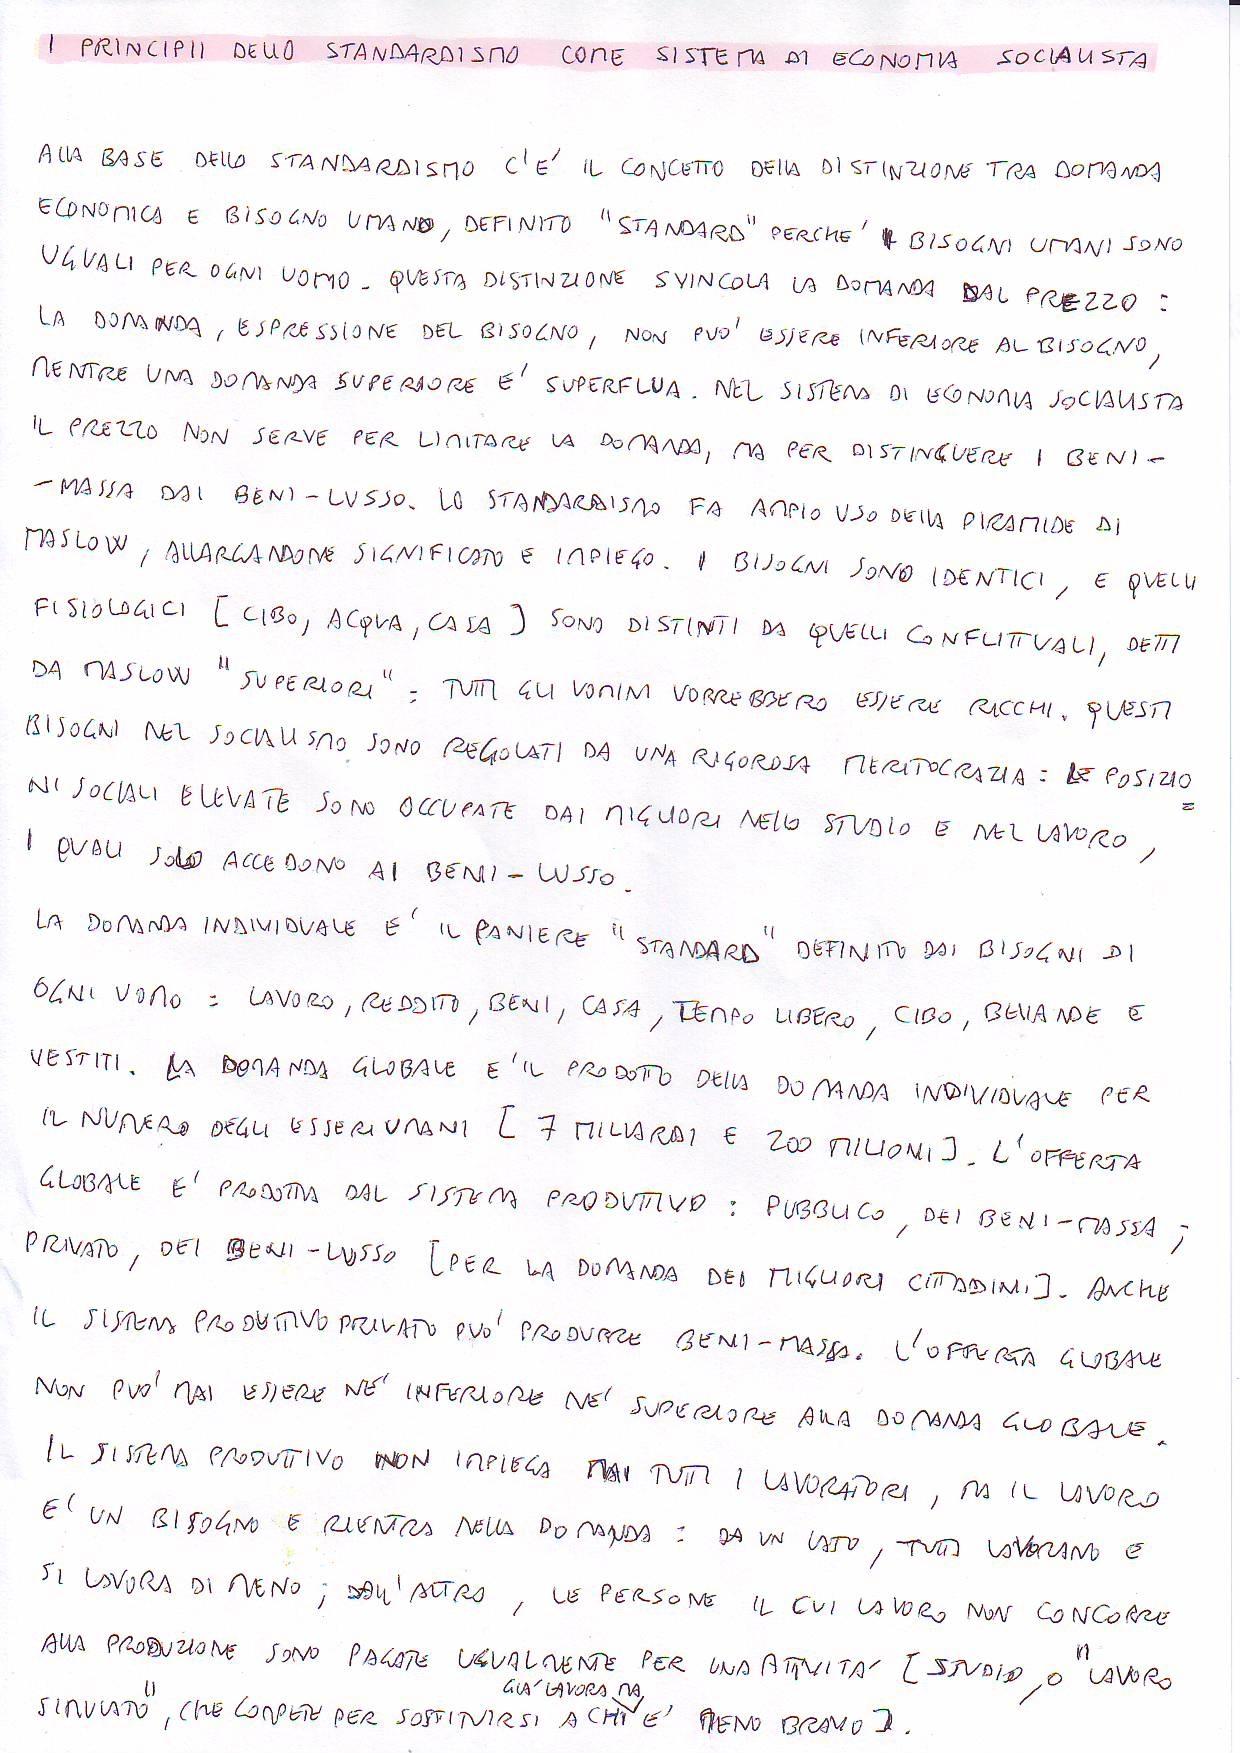 I PRINCIPII DELLO STANDARDISMO COME SISTEMA DI ECONOMIA SOCIALISTA
ALLA BASE DELLO STANDARDISMO C'E' IL CONCETTO DELLA DISTINZIONE TRA DOMANDA
ECONOMICA E BISOGNO UMANO, DEFINITO "STANDARD" PERCHE' I BISOGNI UMANI SONO
UGUALI PER OGNI UOMO. QUESTA DISTINZIONE SVINCOLA LA DOMANDA DAL PREZZO:
LA DOMANDA, ESPRESSIONE DEL BISOGNO, NON PUO' ESSERE INFERIORE AL BISOGNO,
MENTRE UNA DOMANDA SUPERIORE E' SUPERFLUA. NEL SISTEMA DI ECONOMIA SOCIALISTA
IL PREZZO NON SERVE PER LIMITARE LA DOMANDA, MA PER DISTINGUERE I BENI-
-MASSA DAI BENI-LUSSO. LO STANDARDISMO FA AMPIO USO DELLA PIRAMIDE DI
MASLOW, ALLARGANDONE SIGNIFICATO E IMPIEGO. I BISOGNI SONO IDENTICI, E QUELLI
FISIOLOGICI [CIBO, ACQUA, CASA] SONO DISTINTI DA QUELLI CONFLITTUALI, DETTI
DA MASLOW "SUPERIORI": TUTTI GLI UOMINI VORREBBERO ESSERE RICCHI. QUESTI
BISOGNI NEL SOCIALISMO SONO REGOLATI DA UNA RIGOROSA MERITOCRAZIA: LE POSIZIO
=
NI SOCIALI ELEVATE SONO OCCUPATE DAI MIGLIORI NELLO STUDIO E NEL LAVORO,
I QUALI SOLO ACCEDONO AI BENI-LUSSO.
LA DOMANDA INDIVIDUALE E' IL PANIERE "STANDARD" DEFINITO DAI BISOGNI DI
OGNI UOMO: LAVORO, REDDITO, BENI, CASA, TEMPO LIBERO, CIBO, BEVANDE E
VESTITI. LA DOMANDA GLOBALE E' IL PRODOTTO DELLA DOMANDA INDIVIDUALE PER
IL NUMERO DEGLI ESSERI UMANI [7 MILIARDI E 200 MILIONI]. L'OFFERTA
GLOBALE E' PRODOTTA DAL SISTEMA PRODUTTIVO: PUBBLICO, DEI BENI-MASSA;
PRIVATO, DEI BENI-LUSSO [PER LA DOMANDA DEI MIGLIORI CITTADINI]. ANCHE
IL SISTEMA PRODUTTIVO PRIVATO PUO' PRODURRE BENI-MASSA. L'OFFERTA GLOBALE
NON PUO' MAI ESSERE NE' INFERIORE NE' SUPERIORE ALLA DOMANDA GLOBALE.
IL SISTEMA PRODUTTIVO NON IMPIEGA MAI TUTTI I LAVORATORI, MA IL LAVORO
E' UN BISOGNO E RIENTRA NELLA DOMANDA: DA UN LATO, TUTTI LAVORANO E
SI LAVORA DI MENO; DALL'ALTRO, LE PERSONE IL CUI LAVORO NON CONCORRE
ALLA PRODUZIONE SONO PAGATE UGUALMENTE PER UNA ATTIVITA' [STUDIO, O "LAVORO
GIA' LAVORA MA
SIMULATO", CHE COMPETE PER SOSTITUIRSI A CHI E' MENO BRAVO].